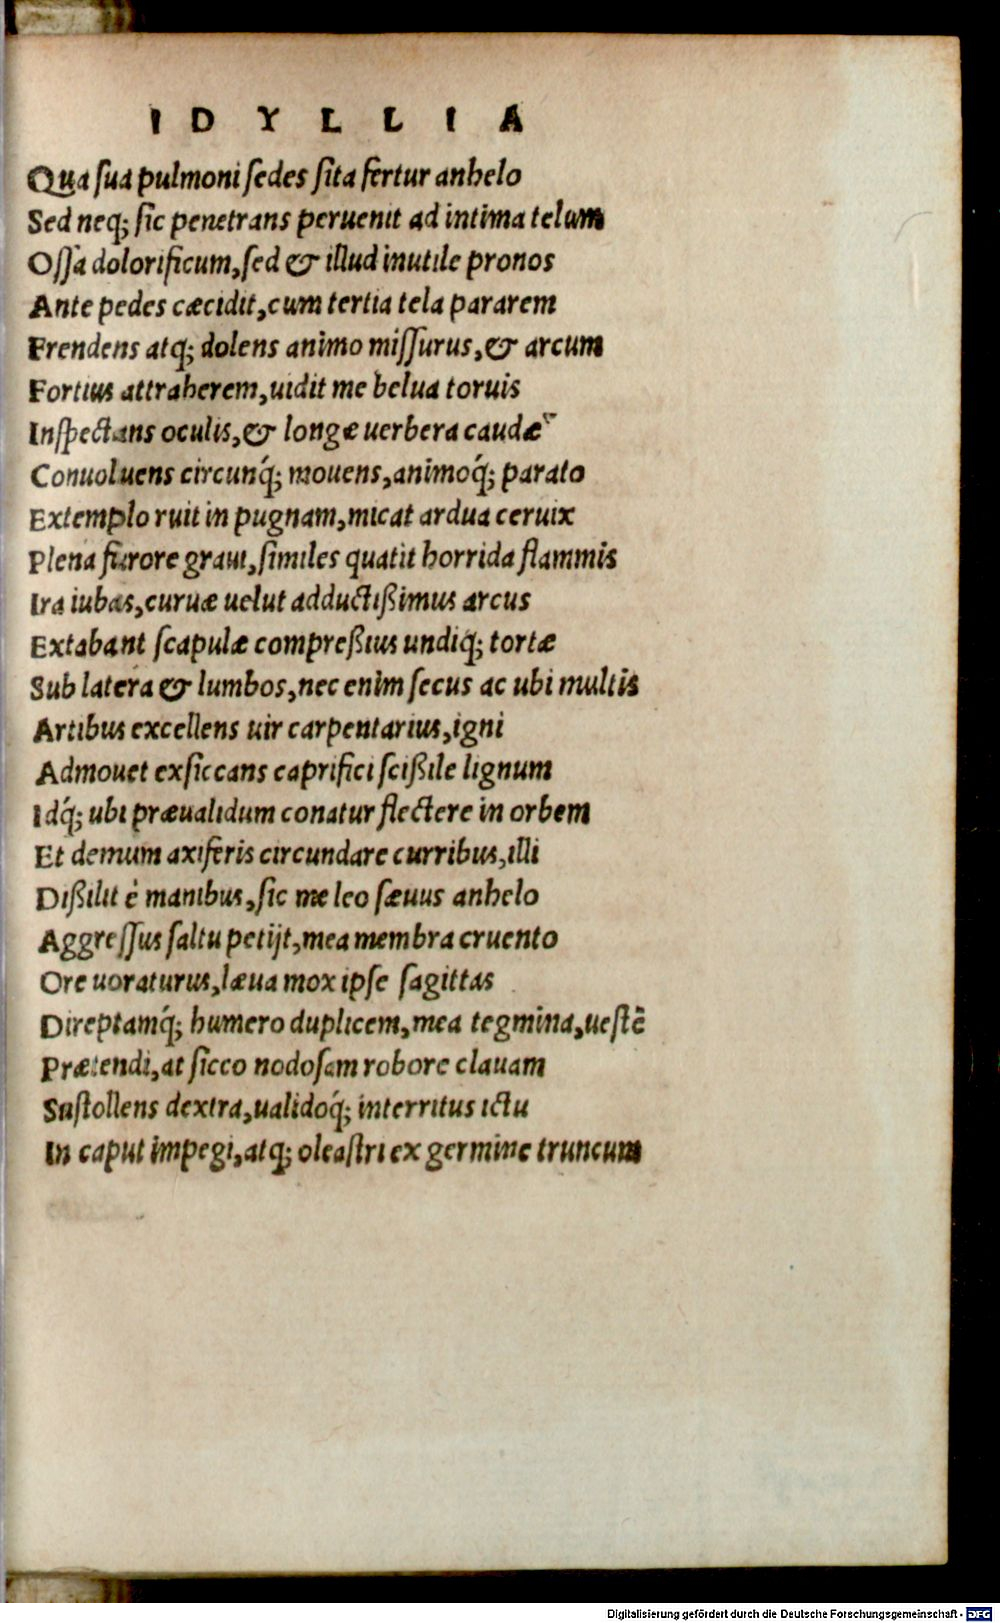 IDYLLIA
Qua ſua pulmoni ſedes ſita fertur anhelo
Sed neq; ſic penetrans peruenit ad intima telum
Oſſa dolorificum, ſed & illud inutile pronos
Ante pedes cæcidit, cum tertia tela pararem
Frendens atq; dolens animo miſſurus, & arcum
Fortius attraherem, uidit me belua toruis
Inſpectans oculis, & longæ uerbera caudæ
Conuoluens circunq́; mouens, animoq́; parato
Extemplo ruit in pugnam, micat ardua ceruix
Plena furore graui, ſimiles quatit horrida flammis
Ira iubas, curuæ uelut adductißimus arcus
Extabant ſcapulæ compreßius undiq; tortæ
Sub latera & lumbos, nec enim ſecus ac ubi multis
Artibus excellens uir carpentarius, igni
Admouet exſiccans caprifici ſcißile lignum
Idq́; ubi præualidum conatur flectere in orbem
Et demum axiferis circundare curribus, illi
Dißilit è manibus, ſic me leo ſæuus anhelo
Aggreſſus ſaltu petijt, mea membra cruento
Ore uoraturus, læua mox ipſe ſagittas
Direptamq́; humero duplicem, mea tegmina, ueſtē
Prætendi, at ſicco nodoſam robore clauam
Suſtollens dextra, ualidoq́; interritus ictu
In caput impegi, atq; oleaſtri ex germine truncum
Digitalisierung gefördert durch die Deutsche Forschungsgemeinschaft - DFG